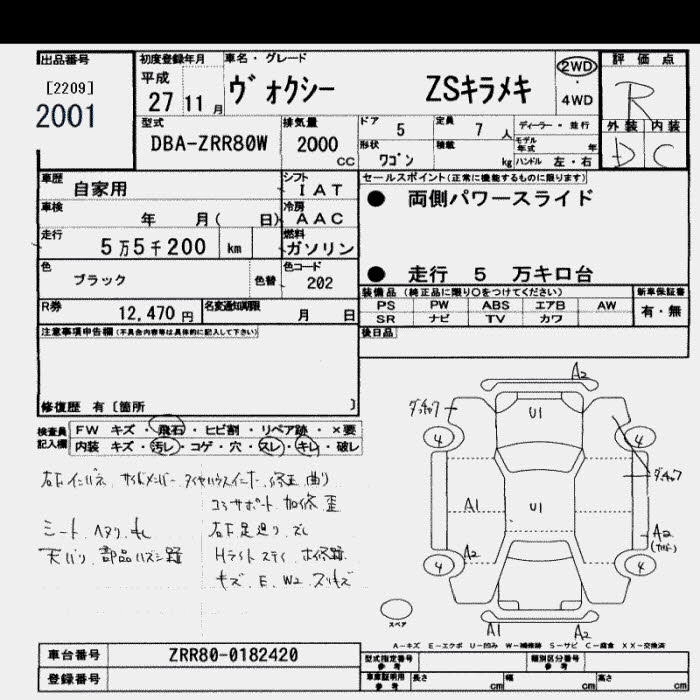 出品番号
[2209]
2001
初度登録年月
平成
27 11 月
車名・グレード
ヴォクシー ZSキラメキ
2WD
・
4WD
評価点
R
外装 内装
D C
型式
DBA-ZRR80W
排気量
2000
CC
ドア 5
定員 7 人
ディーラー・並行
形状 ワゴン
積載 kg
モデル年式 年
ハンドル 左・右
車歴 自家用
シフト IAT
車検 年 月( 日)
冷房 AAC
走行 5万5千200 km
燃料 ガソリン
色 ブラック 色替
色コード 202
R券 12,470 円
名変通知期限 月 日
セールスポイント(正常に機能するものに限ります)
● 両側パワースライド
● 走行 5 万キロ台
装備品(純正品に限り〇をつけてください)
新車保証書
PS PW ABS エアB AW
SR ナビ TV カワ
有・無
後日品
注意事項申告欄(不具合内容等は具体的に記入して下さい)
修復歴 有〔箇所 〕
検査員記入欄
FW キズ・飛石・ヒビ割・リペア跡・×要
内装 キズ・汚レ・コゲ・穴・スレ・キレ・破レ
右Fインパネ サイドメンバー タイヤハウスインナー 修正 曲り
コアサポート 加修 歪
シート ヘタリ
右F足廻り ズレ
天バリ 部品ハズシ跡
Hライトステイ 補修跡
キズ、E、W2 スリキズ
A2
U1
4
4
ダッチャク
A1
U1
A2
A2
4
4
スペア
A1
A2
A-キズ E-エクボ U-凹み W-補修跡 S-サビ C-腐食 XX-交換済
車台番号 ZRR80-0182420
登録番号
型式指定番号
参考
類別区分番号
参考
車庫証明用
参考
長さ cm
幅 cm
高さ cm